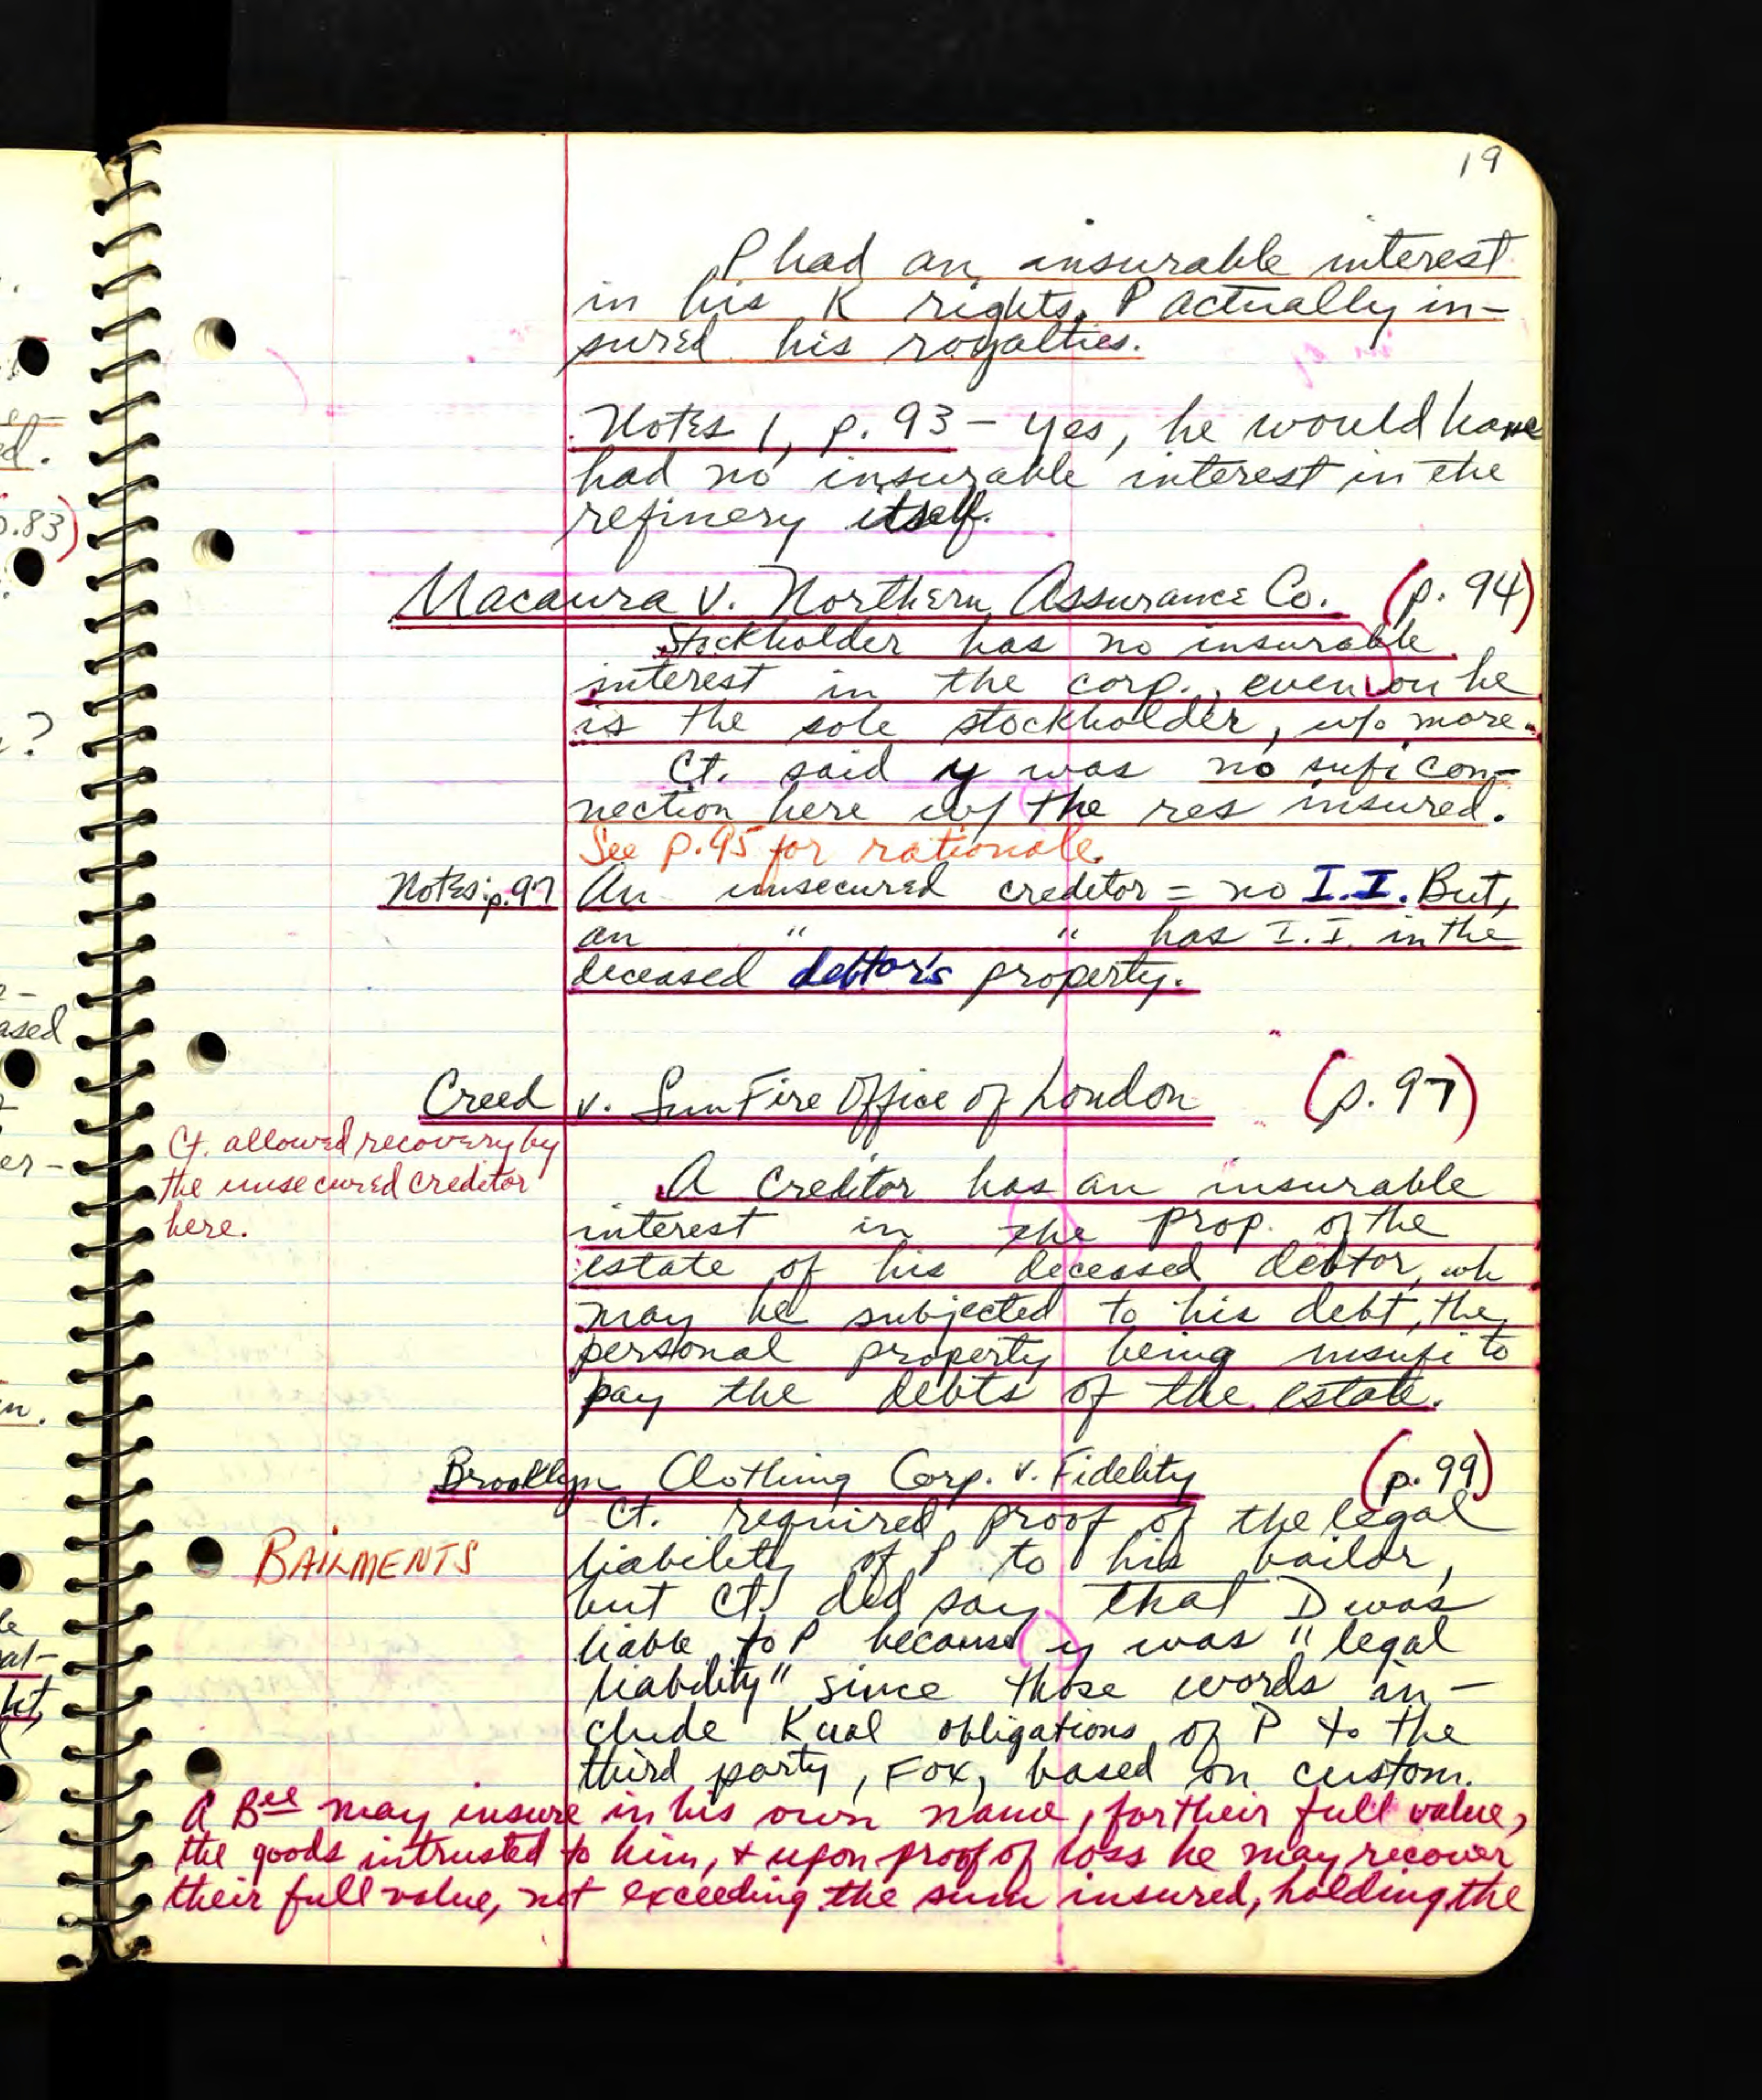 19
P had an insurable interest
in his K rights. P actually in-
sured his royalties.
Notes 1, p. 93 - Yes, he would have
had no insurable interest in the
refinery itself.
Macaura v. Northern Assurance Co. (p. 94)
Stockholder has no insurable
interest in the corp., even on he
is the sole stockholder, w/o more.
Ct. said y was no sufi con-
nection here w/ the res insured.
See p. 95 for rationale.
Notes: p. 97 An unsecured creditor = no I.I. But,
an " " has I.I. in the
deceased debtor's property.
Creed v. Sun Fire Office of London (p. 97)
Ct. allowed recovery by
the unsecured creditor
here.
A Creditor has an insurable
interest in the prop. of the
estate of his deceased debtor, wh
may be subjected to his debt, the
personal property being insufi to
pay the debts of the estate.
Brooklyn Clothing Corp. v. Fidelity (p. 99)
BAILMENTS
Ct. required proof of the legal
liability of P to his bailor,
but Ct. did say that D was
liable to P because y was "legal
liability" since those words in-
clude Kual obligations of P to the
third party, Fox, based on custom.
A Bee may insure in his own name, for their full value,
the goods intrusted to him, + upon proof of loss he may recover
their full value, not exceeding the sum insured, holding the
p.83)
ed.
?
ased
er-